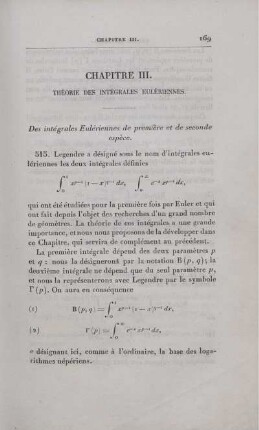 CHAPITRE III. 169
CHAPITRE III.
THÉORIE DES INTÉGRALES EULÉRIENNES.
Des intégrales Eulériennes de première et de seconde
espèce.
515. Legendre a désigné sous le nom d'intégrales eu-
lériennes les deux intégrales définies
∫₀¹ xᵖ⁻¹(1 − x)^{q−1} dx, ∫₀^∞ e⁻ˣ xᵖ⁻¹ dx,
qui ont été étudiées pour la première fois par Euler et qui
ont fait depuis l'objet des recherches d'un grand nombre
de géomètres. La théorie de ces intégrales a une grande
importance, et nous nous proposons de la développer dans
ce Chapitre, qui servira de complément au précédent.
La première intégrale dépend des deux paramètres p
et q : nous la désignerons par la notation B(p, q); la
deuxième intégrale ne dépend que du seul paramètre p,
et nous la représenterons avec Legendre par le symbole
Γ(p). On aura en conséquence
(1) B(p, q) = ∫₀¹ xᵖ⁻¹(1 − x)^{q−1} dx,
(2) Γ(p) = ∫₀^∞ e⁻ˣ xᵖ⁻¹ dx,
e désignant ici, comme à l'ordinaire, la base des loga-
rithmes népériens.